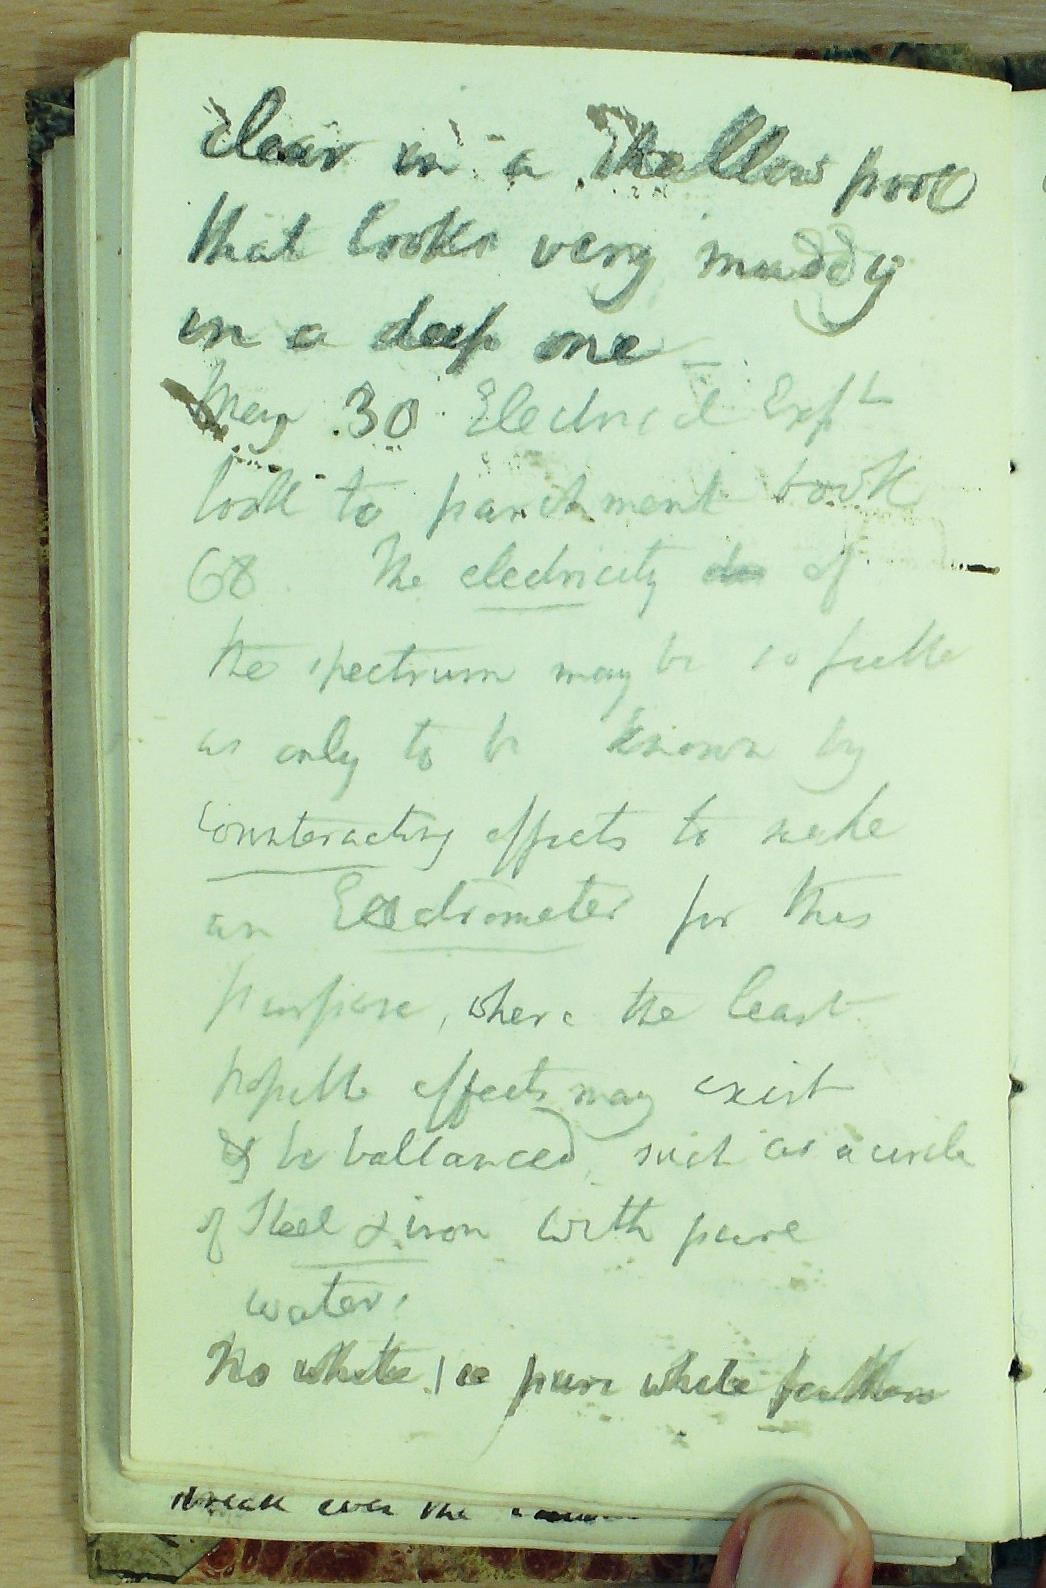 clear in a shallow pool
that looks very muddy
in a deep one –
May 30 Electrical Expt
look to parchment book
68 The electricity of
the spectrum may be so feeble
as only to be known by
counteracting effects to make
an Electrometer for this
purpose, where the least
possible effects may exist
& be ballanced such as a circle
of Steel & iron with pure
water.
No white, ie pure white feathers
streak over the